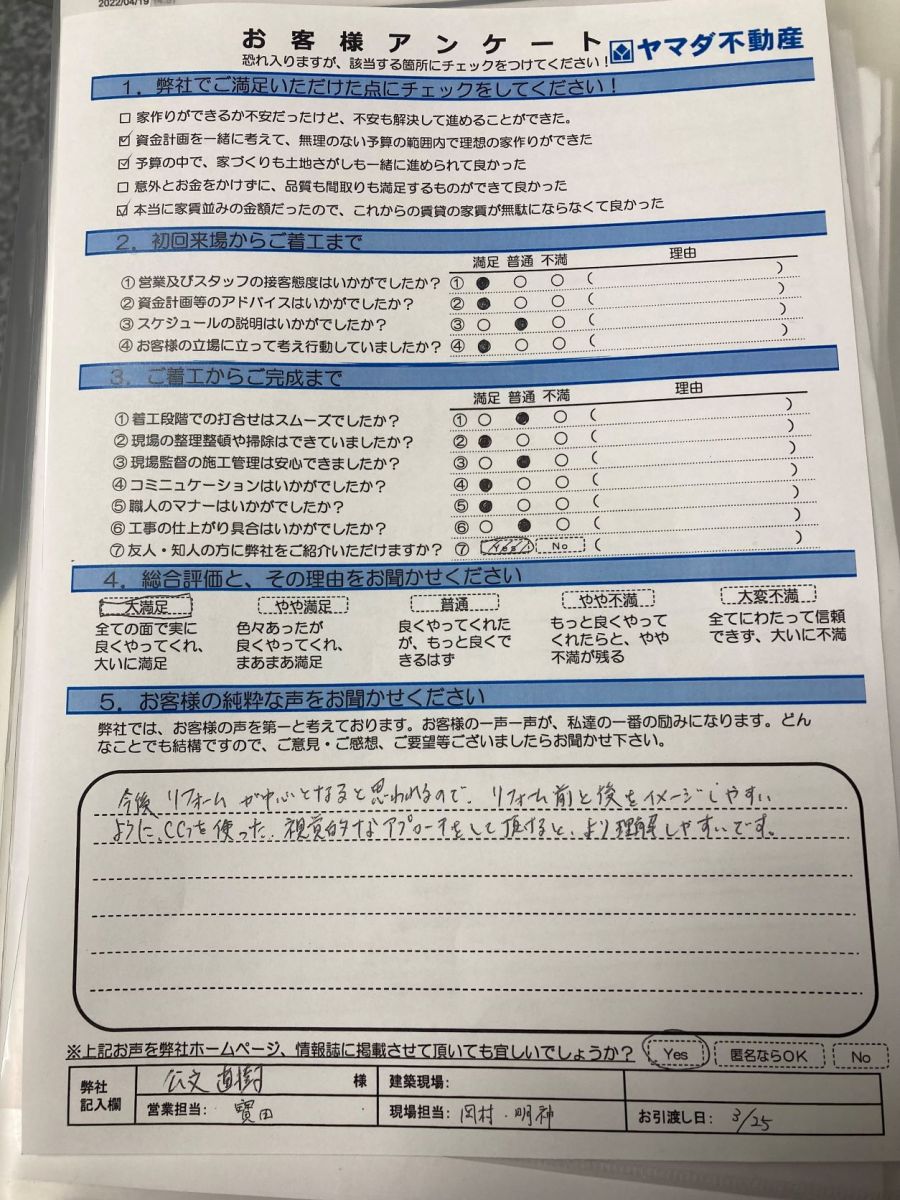 2022/04/19
お客様アンケート
ヤマダ不動産
恐れ入りますが、該当する箇所にチェックをつけてください！
1．弊社でご満足いただけた点にチェックをしてください！
□ 家作りができるか不安だったけど、不安も解決して進めることができた。
☑ 資金計画を一緒に考えて、無理のない予算の範囲内で理想の家作りができた
☑ 予算の中で、家づくりも土地さがしも一緒に進められて良かった
□ 意外とお金をかけずに、品質も間取りも満足するものができて良かった
☑ 本当に家賃並みの金額だったので、これからの賃貸の家賃が無駄にならなくて良かった
2．初回来場からご着工まで
満足 普通 不満 理由
①営業及びスタッフの接客態度はいかがでしたか？ ① ● ○ ○ （ ）
②資金計画等のアドバイスはいかがでしたか？ ② ● ○ ○ （ ）
③スケジュールの説明はいかがでしたか？ ③ ○ ● ○ （ ）
④お客様の立場に立って考え行動していましたか？ ④ ● ○ ○ （ ）
3．ご着工からご完成まで
満足 普通 不満 理由
①着工段階での打合せはスムーズでしたか？ ① ○ ● ○ （ ）
②現場の整理整頓や掃除はできていましたか？ ② ● ○ ○ （ ）
③現場監督の施工管理は安心できましたか？ ③ ○ ● ○ （ ）
④コミニュケーションはいかがでしたか？ ④ ● ○ ○ （ ）
⑤職人のマナーはいかがでしたか？ ⑤ ● ○ ○ （ ）
⑥工事の仕上がり具合はいかがでしたか？ ⑥ ○ ● ○ （ ）
⑦友人・知人の方に弊社をご紹介いただけますか？ ⑦ Yes No （ ）
4．総合評価と、その理由をお聞かせください
大満足 やや満足 普通 やや不満 大変不満
全ての面で実に 色々あったが 良くやってくれた もっと良くやって 全てにわたって信頼
良くやってくれ、 良くやってくれ、 が、もっと良くで くれたらと、やや できず、大いに不満
大いに満足 まあまあ満足 きるはず 不満が残る
5．お客様の純粋な声をお聞かせください
弊社では、お客様の声を第一と考えております。お客様の一声一声が、私達の一番の励みになります。どん
なことでも結構ですので、ご意見・ご感想、ご要望等ございましたらお聞かせ下さい。
今後 リフォームが中心となると思われるので、リフォーム前と後をイメージしやすい
ように、CGを使った、視覚的なアプローチをして頂けると、より理解しやすいです。
※上記お声を弊社ホームページ、情報誌に掲載させて頂いても宜しいでしょうか？ Yes 匿名ならOK No
弊社 公文 直樹 様 建築現場：
記入欄 営業担当： 寶田 現場担当： 岡村・明神 お引渡し日： 3/25